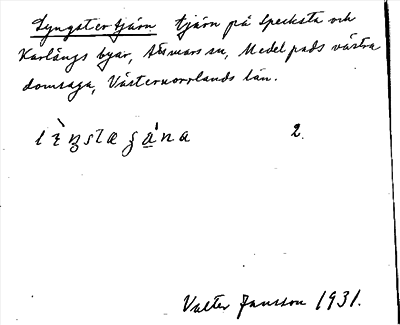 Lyngstertjärn tjärn på Specksta och
Karlängs byar, Attmars sn, Medelpads västra
domsaga, Västernorrlands län.
2.
Valter Jansson 1931.